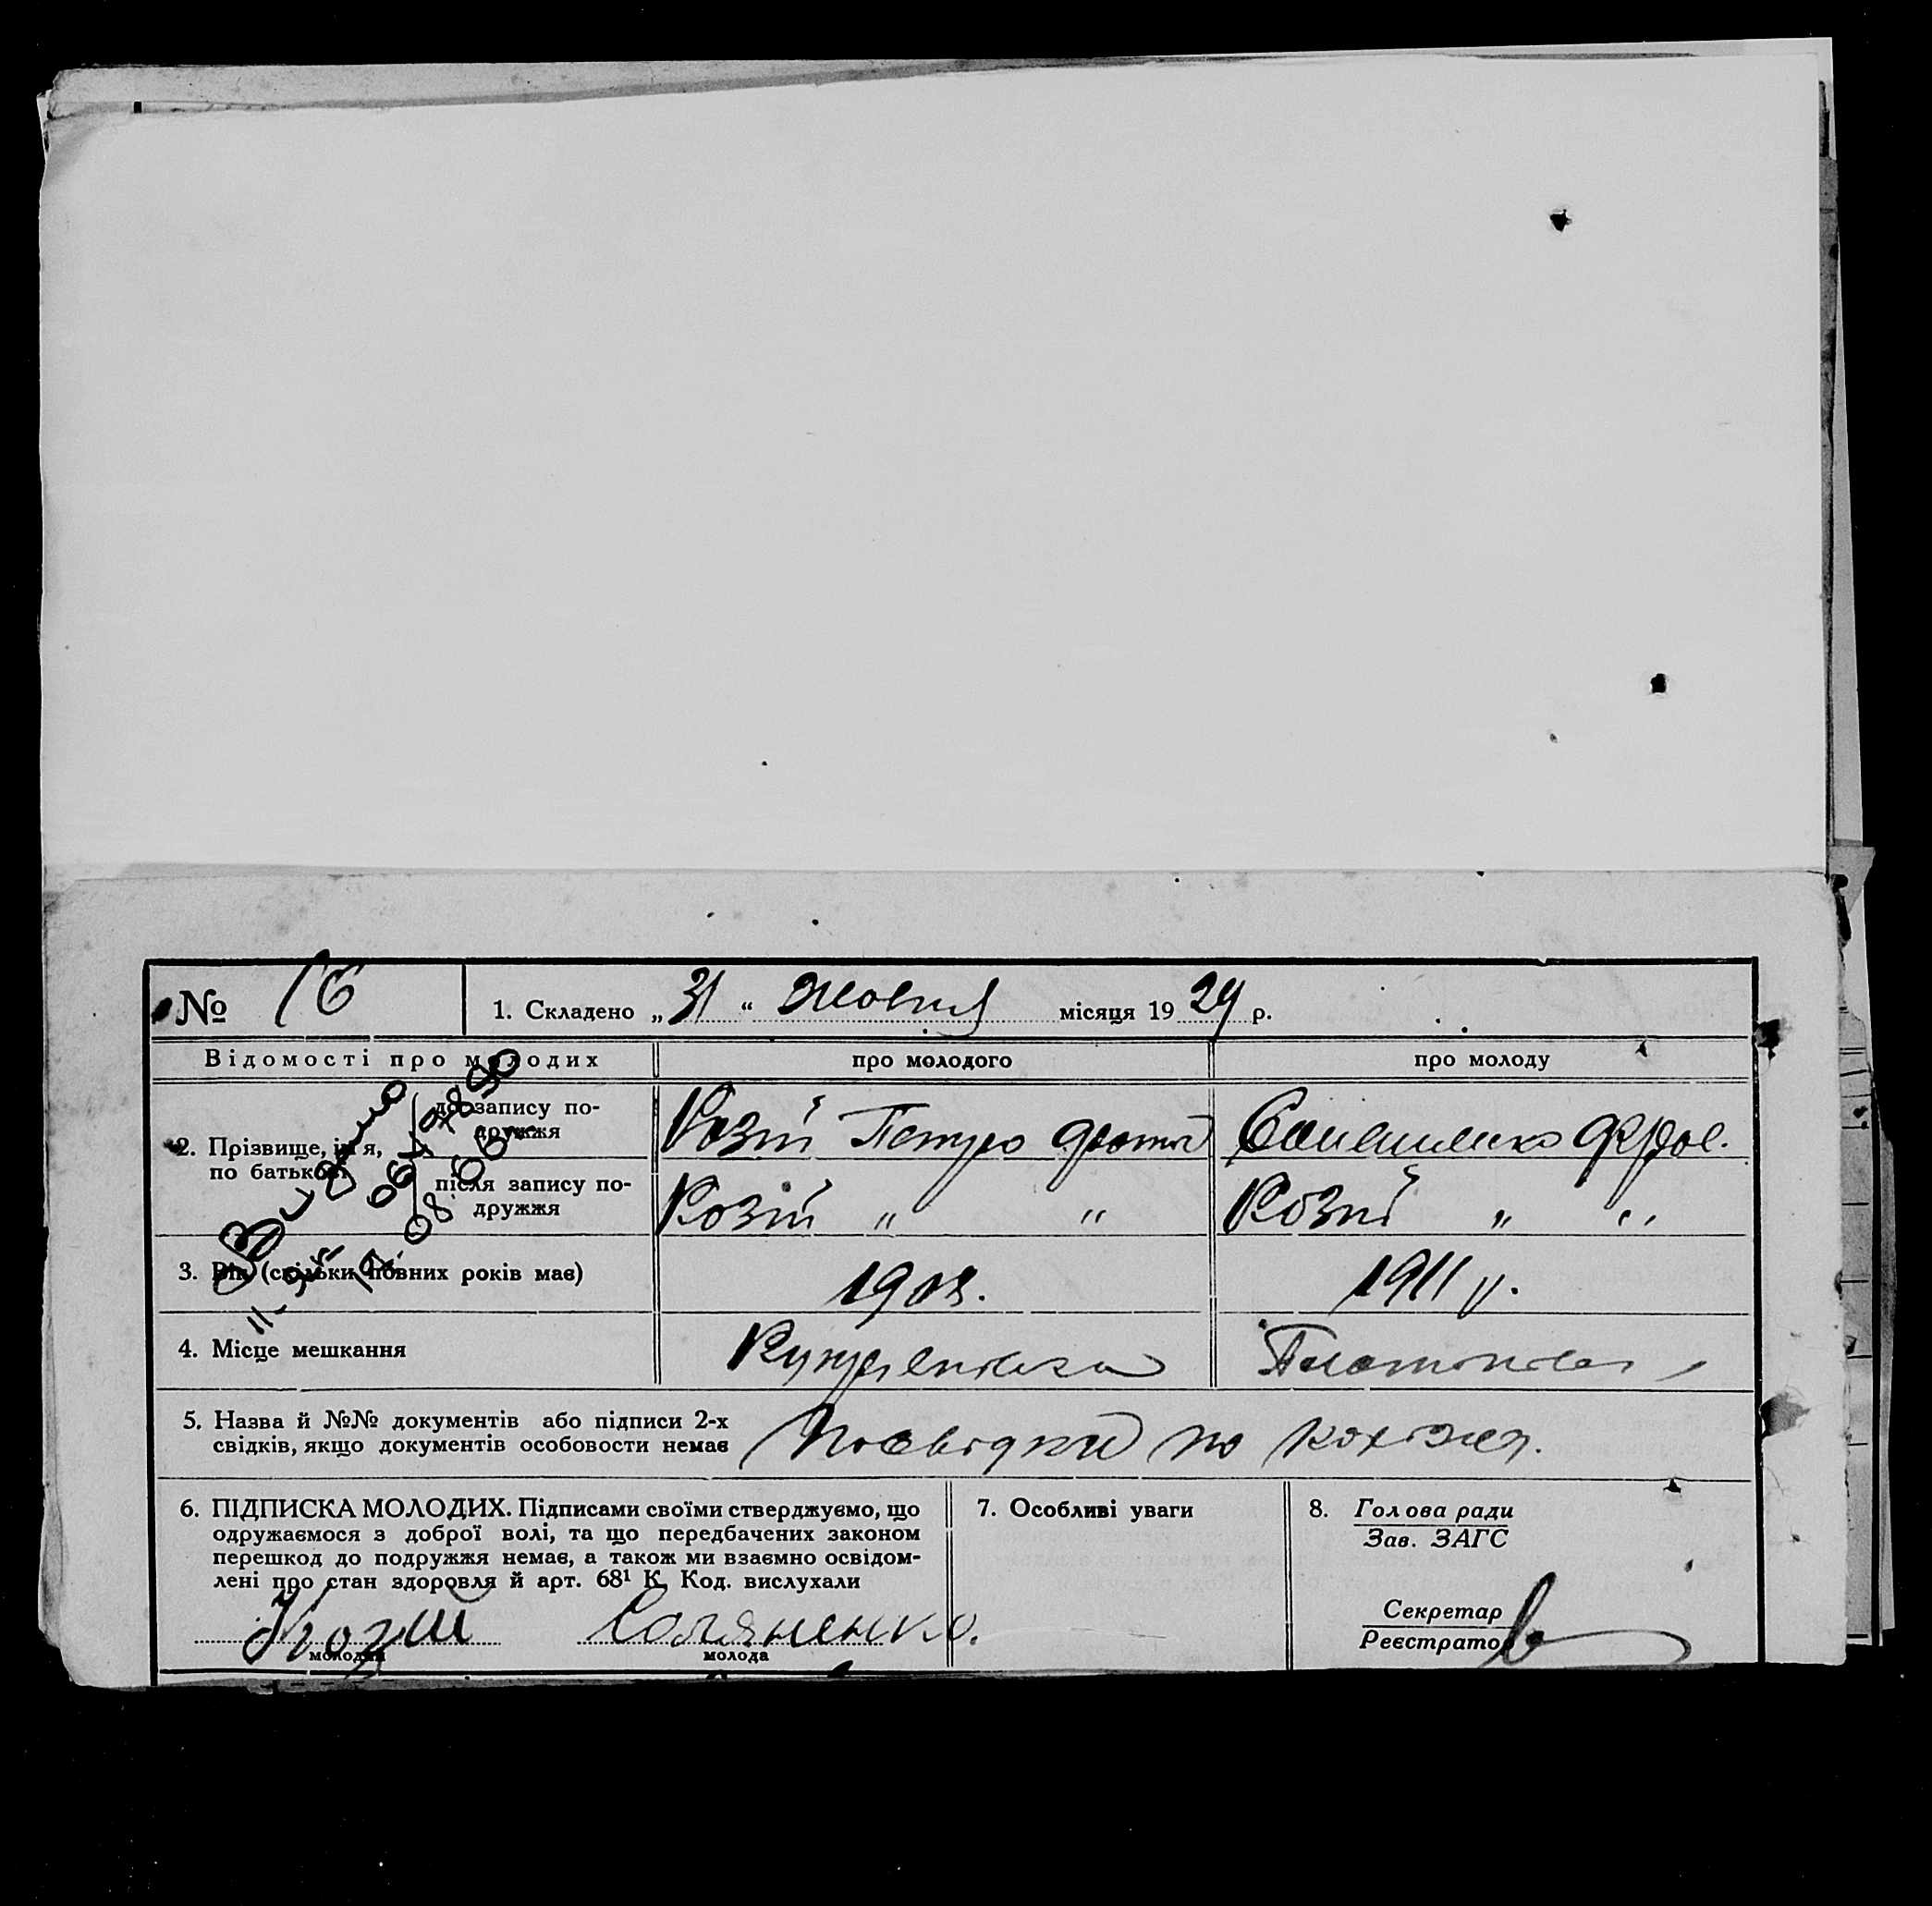 № 16
1. Складено „ 31 “ Жовтня місяця 19 29 р.
Відомості про молодих
про молодого
про молоду
2. Прізвище, ім'я, по батькові
до запису подружжя
Козій Петро
після запису подружжя
Козій " "
Козій " "
3. Вік (скільки повних років має)
1908.
1911 р.
4. Місце мешкання
5. Назва й №№ документів або підписи 2-х
свідків, якщо документів особовости немає
Посвідки по кохозна.
6. ПІДПИСКА МОЛОДИХ. Підписами своїми стверджуємо, що
одружаємося з доброї волі, та що передбачених законом
перешкод до подружжя немає, а також ми взаємно освідом-
лені про стан здоровля й арт. 68¹ К. Код. вислухали
Козій
молодий
Соляненко.
молода
7. Особливі уваги
8. Голова ради
Зав. ЗАГС
Секретар
Реєстратор
Видано
12.08.66